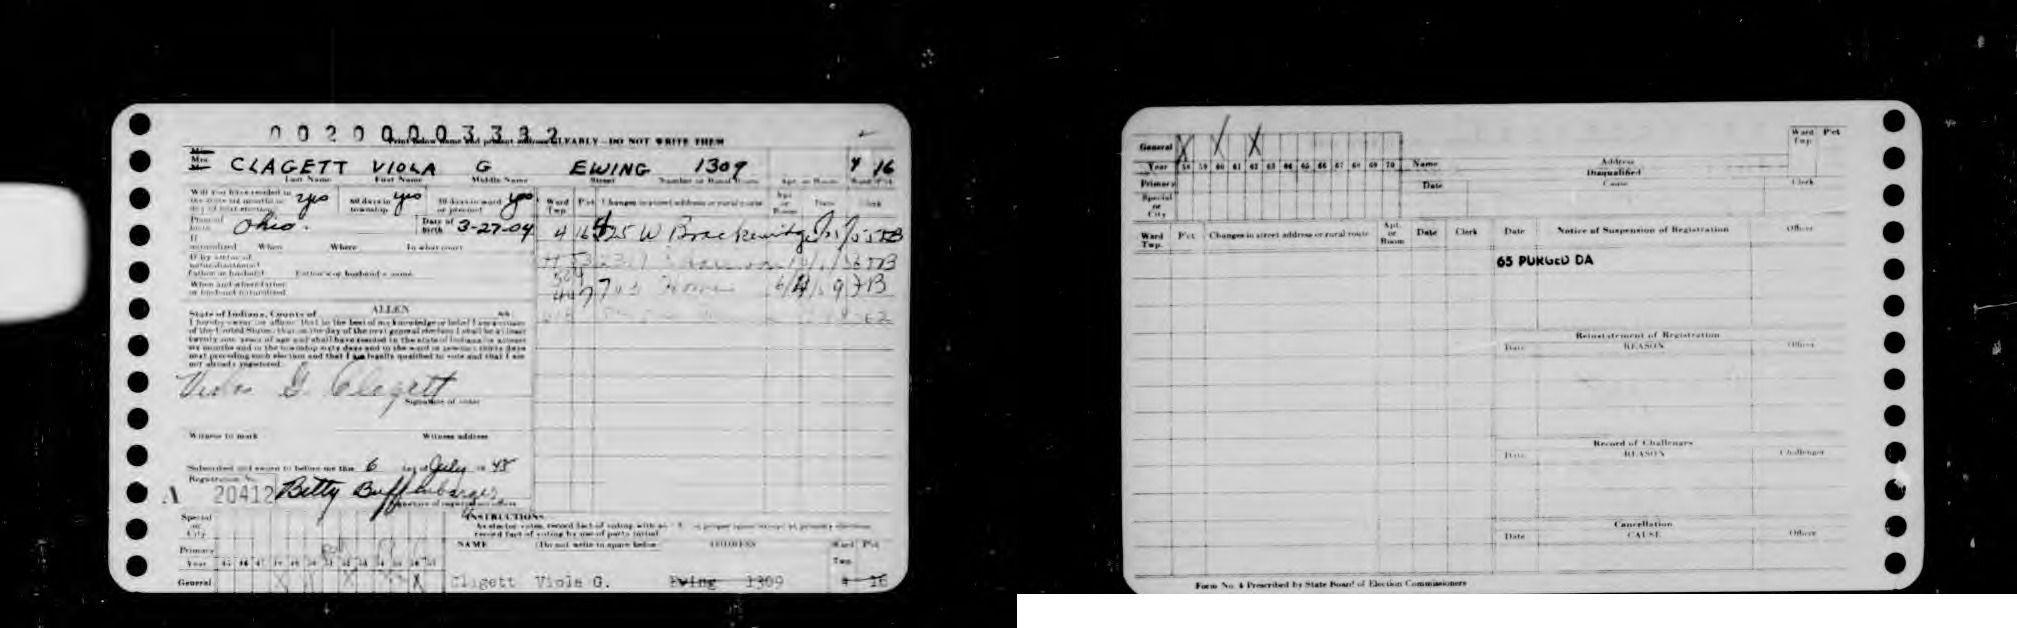 00200003332
Print below name and present address CLEARLY—DO NOT WRITE THEM
Mrs. CLAGETT VIOLA G EWING 1309 4 16
Last Name First Name Middle Name Street Number or Rural Route Apt. or Room Ward Pct
Will you have resided in the state six months on day of next election yes 60 days in township yes 30 days in ward or precinct yes
Ward Twp Pct Changes in street address or rural route Apt or Room Date Clerk
Place of birth Ohio. Date of birth 3-27-04
4 16 525 W
If naturalized When Where In what court
If by virtue of naturalization of Father or husband Father's or husband's name
When and where father or husband naturalized
State of Indiana, County of ALLEN ss:
I hereby swear (or affirm) that to the best of my knowledge or belief I am a citizen
of the United States; that on the day of the next general election I shall be at least
twenty-one years of age and shall have resided in the state of Indiana at least
six months and in the township sixty days and in the ward or precinct thirty days
next preceding such election and that I am legally qualified to vote and that I am
not already registered.
Viola G. Clagett
Signature of voter
Witness to mark Witness address
Subscribed and sworn to before me this 6 day of July 19 48
Registration No.
A 20412 Betty Buffenbarger
Signature of registration officer
INSTRUCTIONS
Special or City
Primary
NAME (Do not write in space below) ADDRESS Ward Twp Pct
Year 45 46 47 48 49 50 51 52 53 54 55 56 57
General X X X X Clagett Viola G. Ewing 1309 4 16
General X / X
Year 58 59 60 61 62 63 64 65 66 67 68 69 70
Name Address Ward Twp Pct
Disqualified
Primary
Date Cause Clerk
Special or City
Ward Twp. Pct Changes in street address or rural route Apt. or Room Date Clerk
Date Notice of Suspension of Registration Officer
65 PURGED DA
Reinstatement of Registration
Date REASON Officer
Record of Challenges
Date REASON Challenger
Cancellation
Date CAUSE Officer
Form No. 4 Prescribed by State Board of Election Commissioners